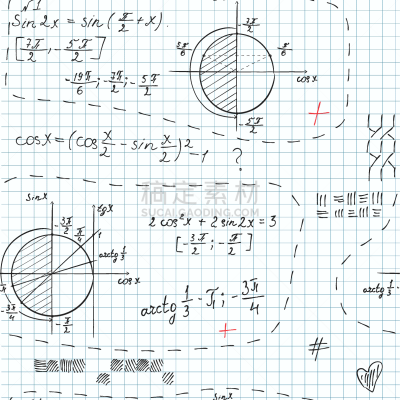 №1
Sin2x = sin(π/2 + x).
[7π/2, -5π/2]
-19π/6; -7π/2; -5π/2
-7π/2
5π/6
π/6
cosx
-5π/2
cosx = (cos x/2 - sin x/2)² - 1
?
稿定素材
SUCAI.GAODING.COM
sinx
tgx
-3π/2
π/4
1
arctg 1/3
cosx
π
-3π/4
-π/2
2cos²x + 2sin2x = 3
[-3π/2; -π/2]
arctg 1/3 - π; -3π/4
arctg 1/3
#
sinx